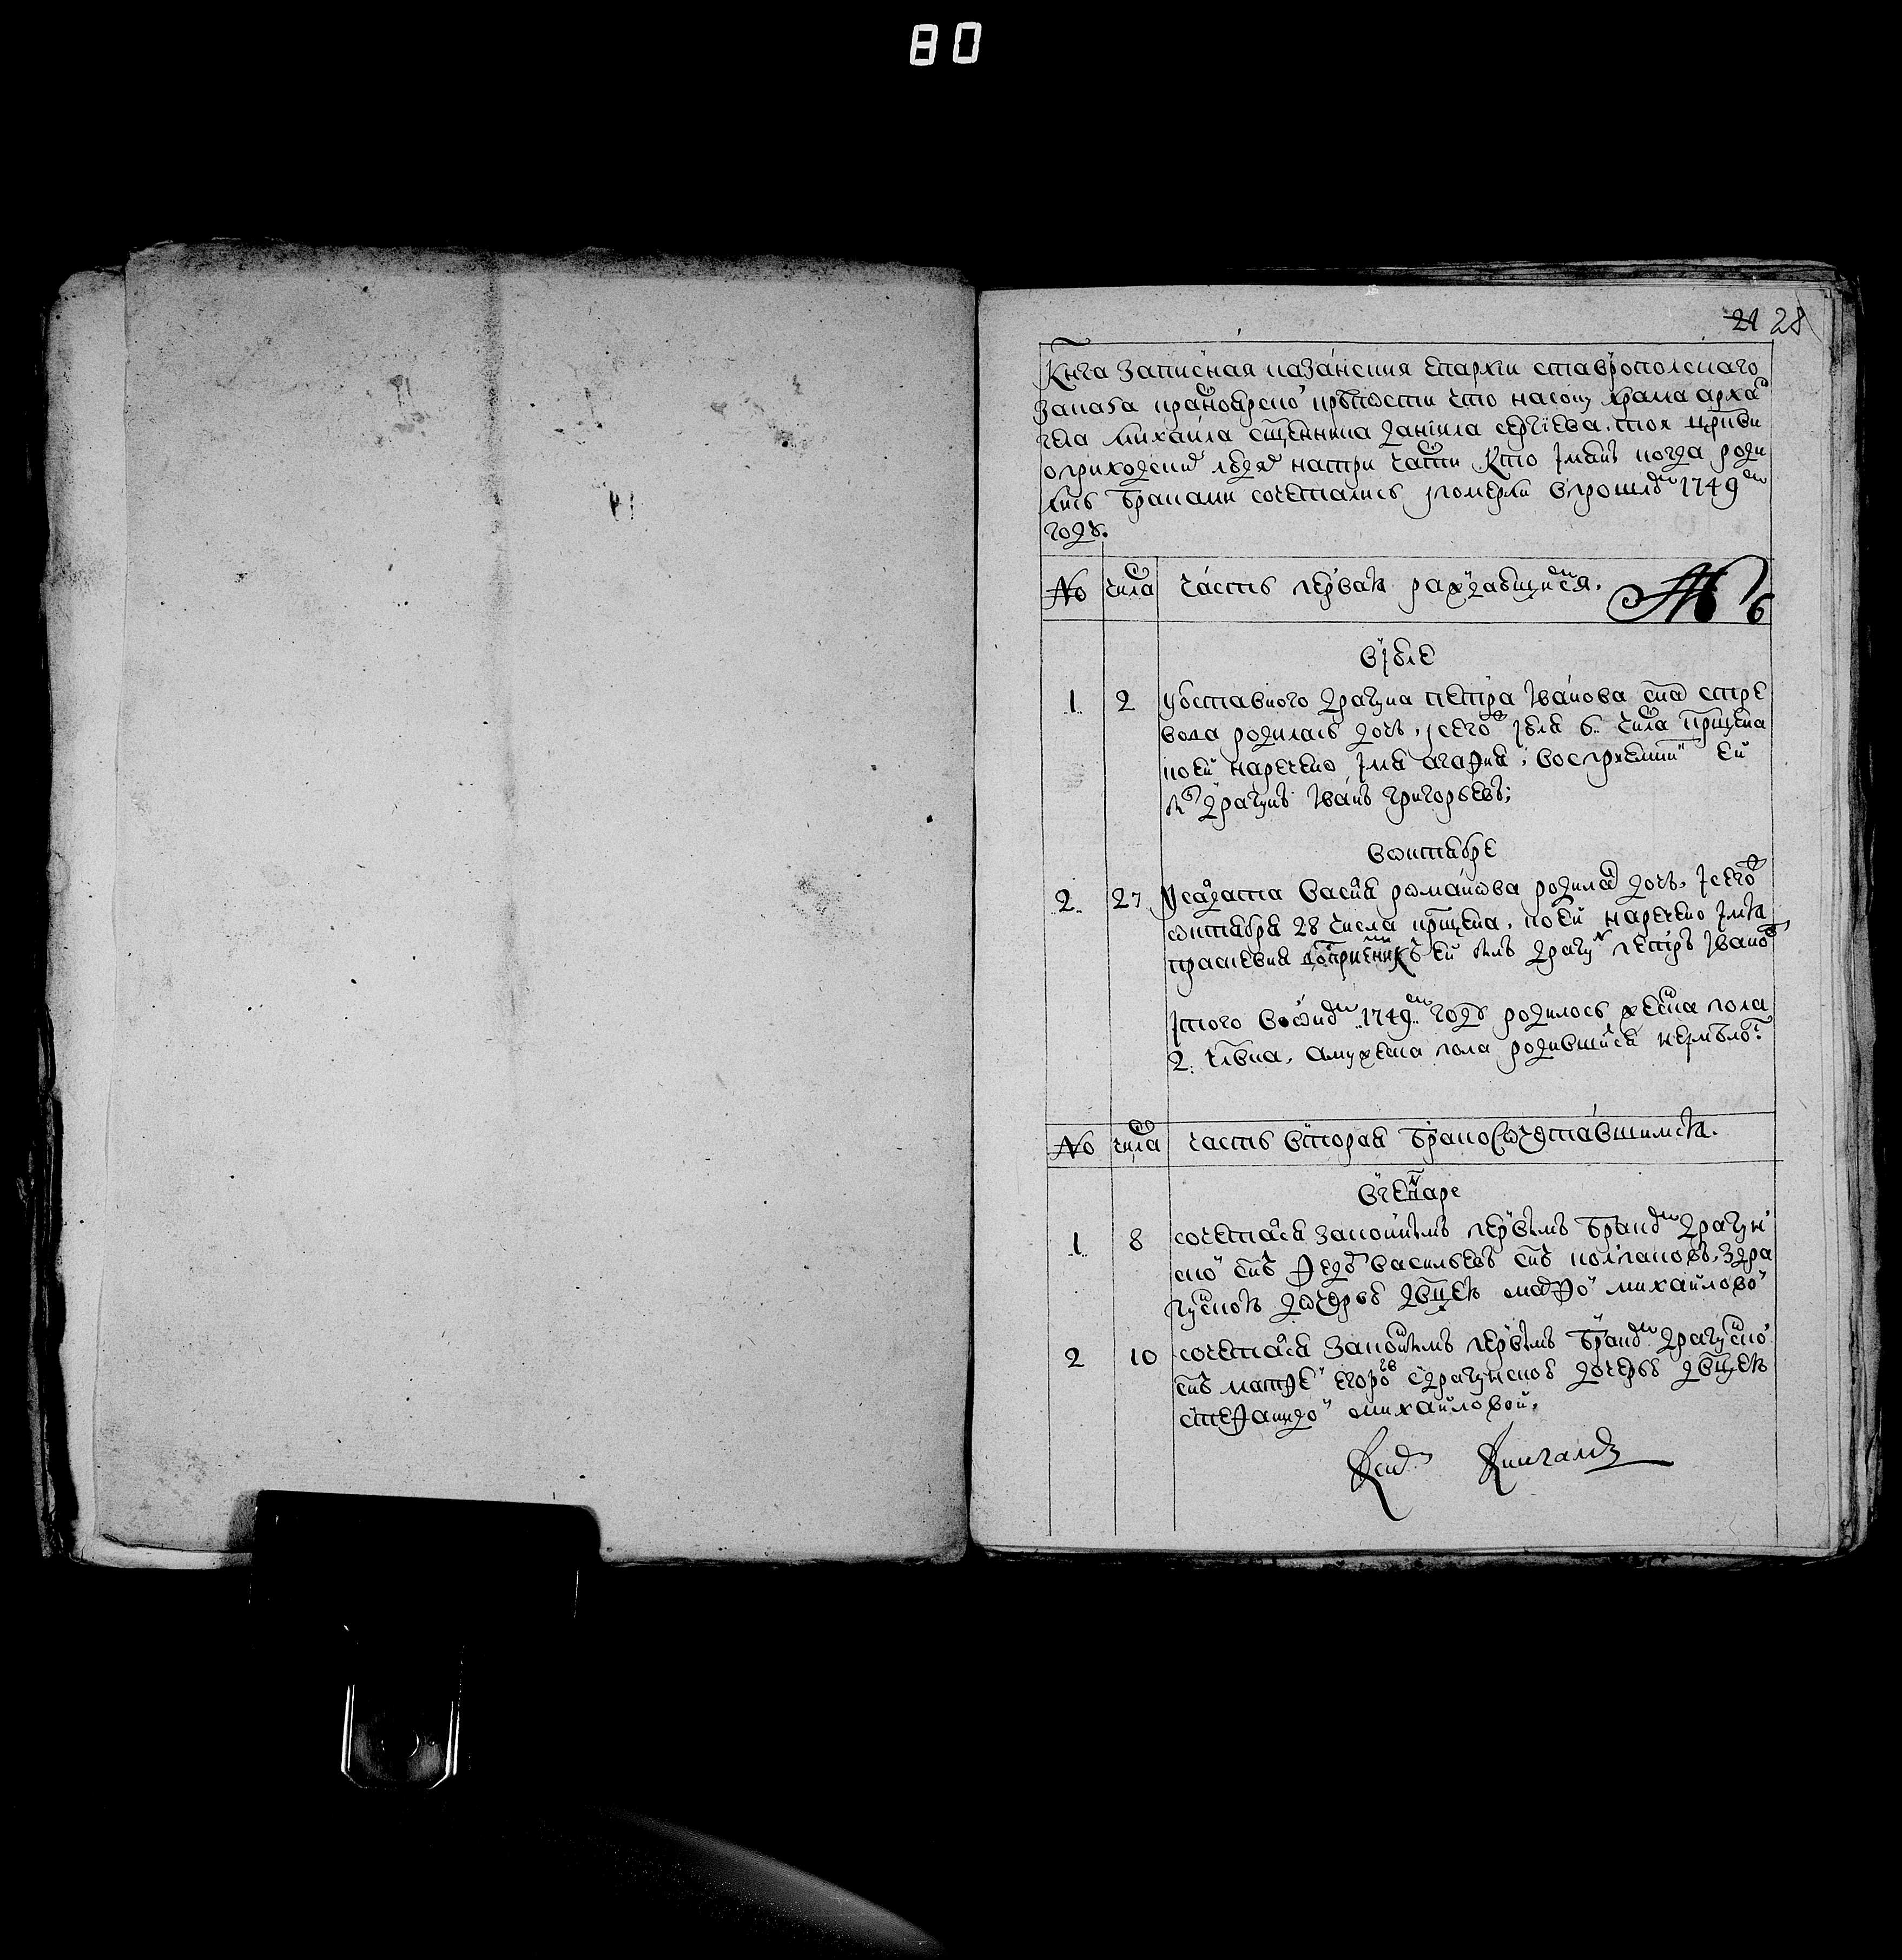 80
21 28
Книга записная казанския епархии ставрополскаго
заказа красноярской крѣпости что на соку храма арха
гела михаила сщенника данила сергиева тоя цркви
о приходских людях на три части кто имянъ когда роди
лись браками сочетались и померли в прошлом 1749 м
годѣ.
No числа часть первая раждающимся.
в июле
1 2 у отставного драгуна петра иванова сна стре
родилась дочь, и сего июля 6 числа крщена
и ей наречено имя агафия, восприемник ей
драгунъ иванъ григорьевъ;
в октябре
2 27 у салдата василя романова родилас дочь, и сего
октября 28 числа крщена, и ей наречено имя
праскевия ей драгун петръ иванов
итого в оном 1749 м годѣ родилось женска пола
2 члвка, а мужеска пола родившихся не было.
No числа часть вторая браком сочетавшимся.
в генваре
1 8 сочетался законнымъ первымъ браком драгун
ской снъ федор васильевъ снъ з дра
гунскою дочерью двцею михайловой
2 10 сочетался законнымъ первымъ браком драгунской
снъ матфей егоров з драгунскою дочерью двцею
стефанидой михайловой.